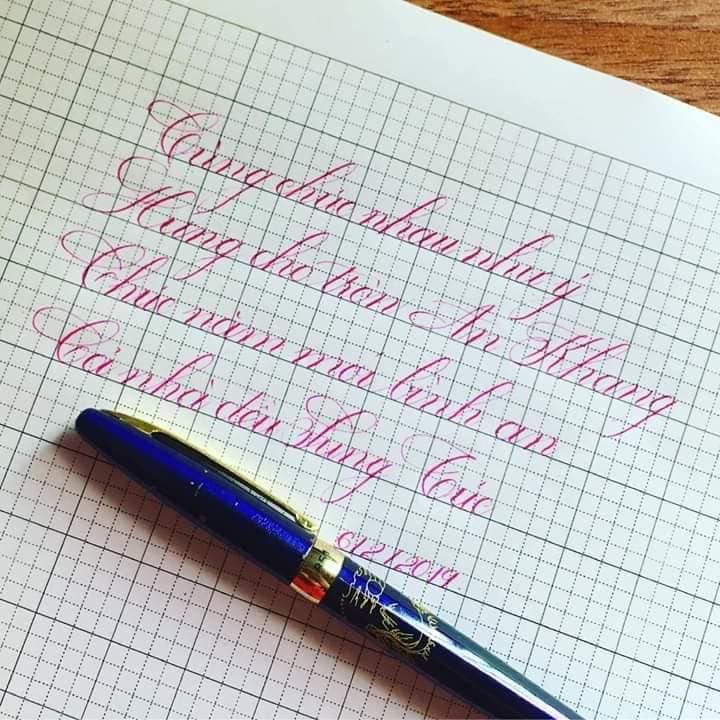 Cùng chúc nhau như ý
Hứng cho tròn An Khang
Chúc năm mới bình an
Cả nhà đều Sung Túc
6/2/2019